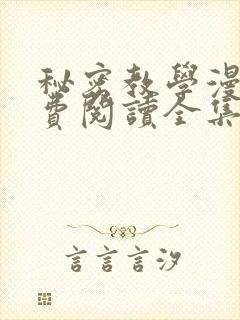 秘密教學漫
費閱讀全集
言言言汐